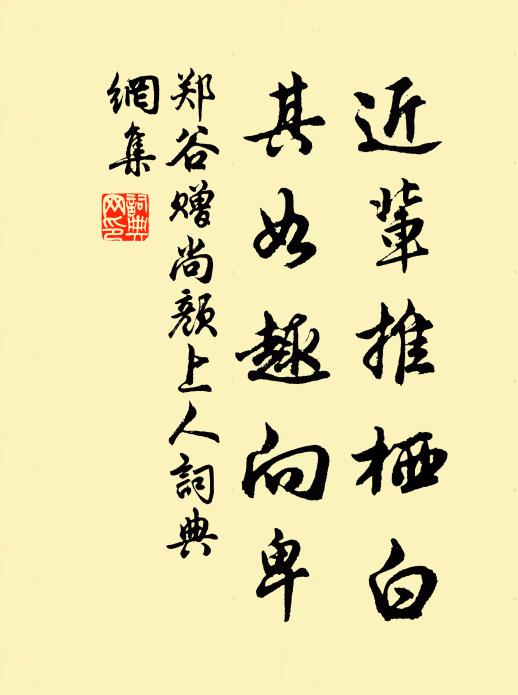 近輩推栖白
其如趣向卑
郑谷赠尚顏上人詞典
網集
詞典網印